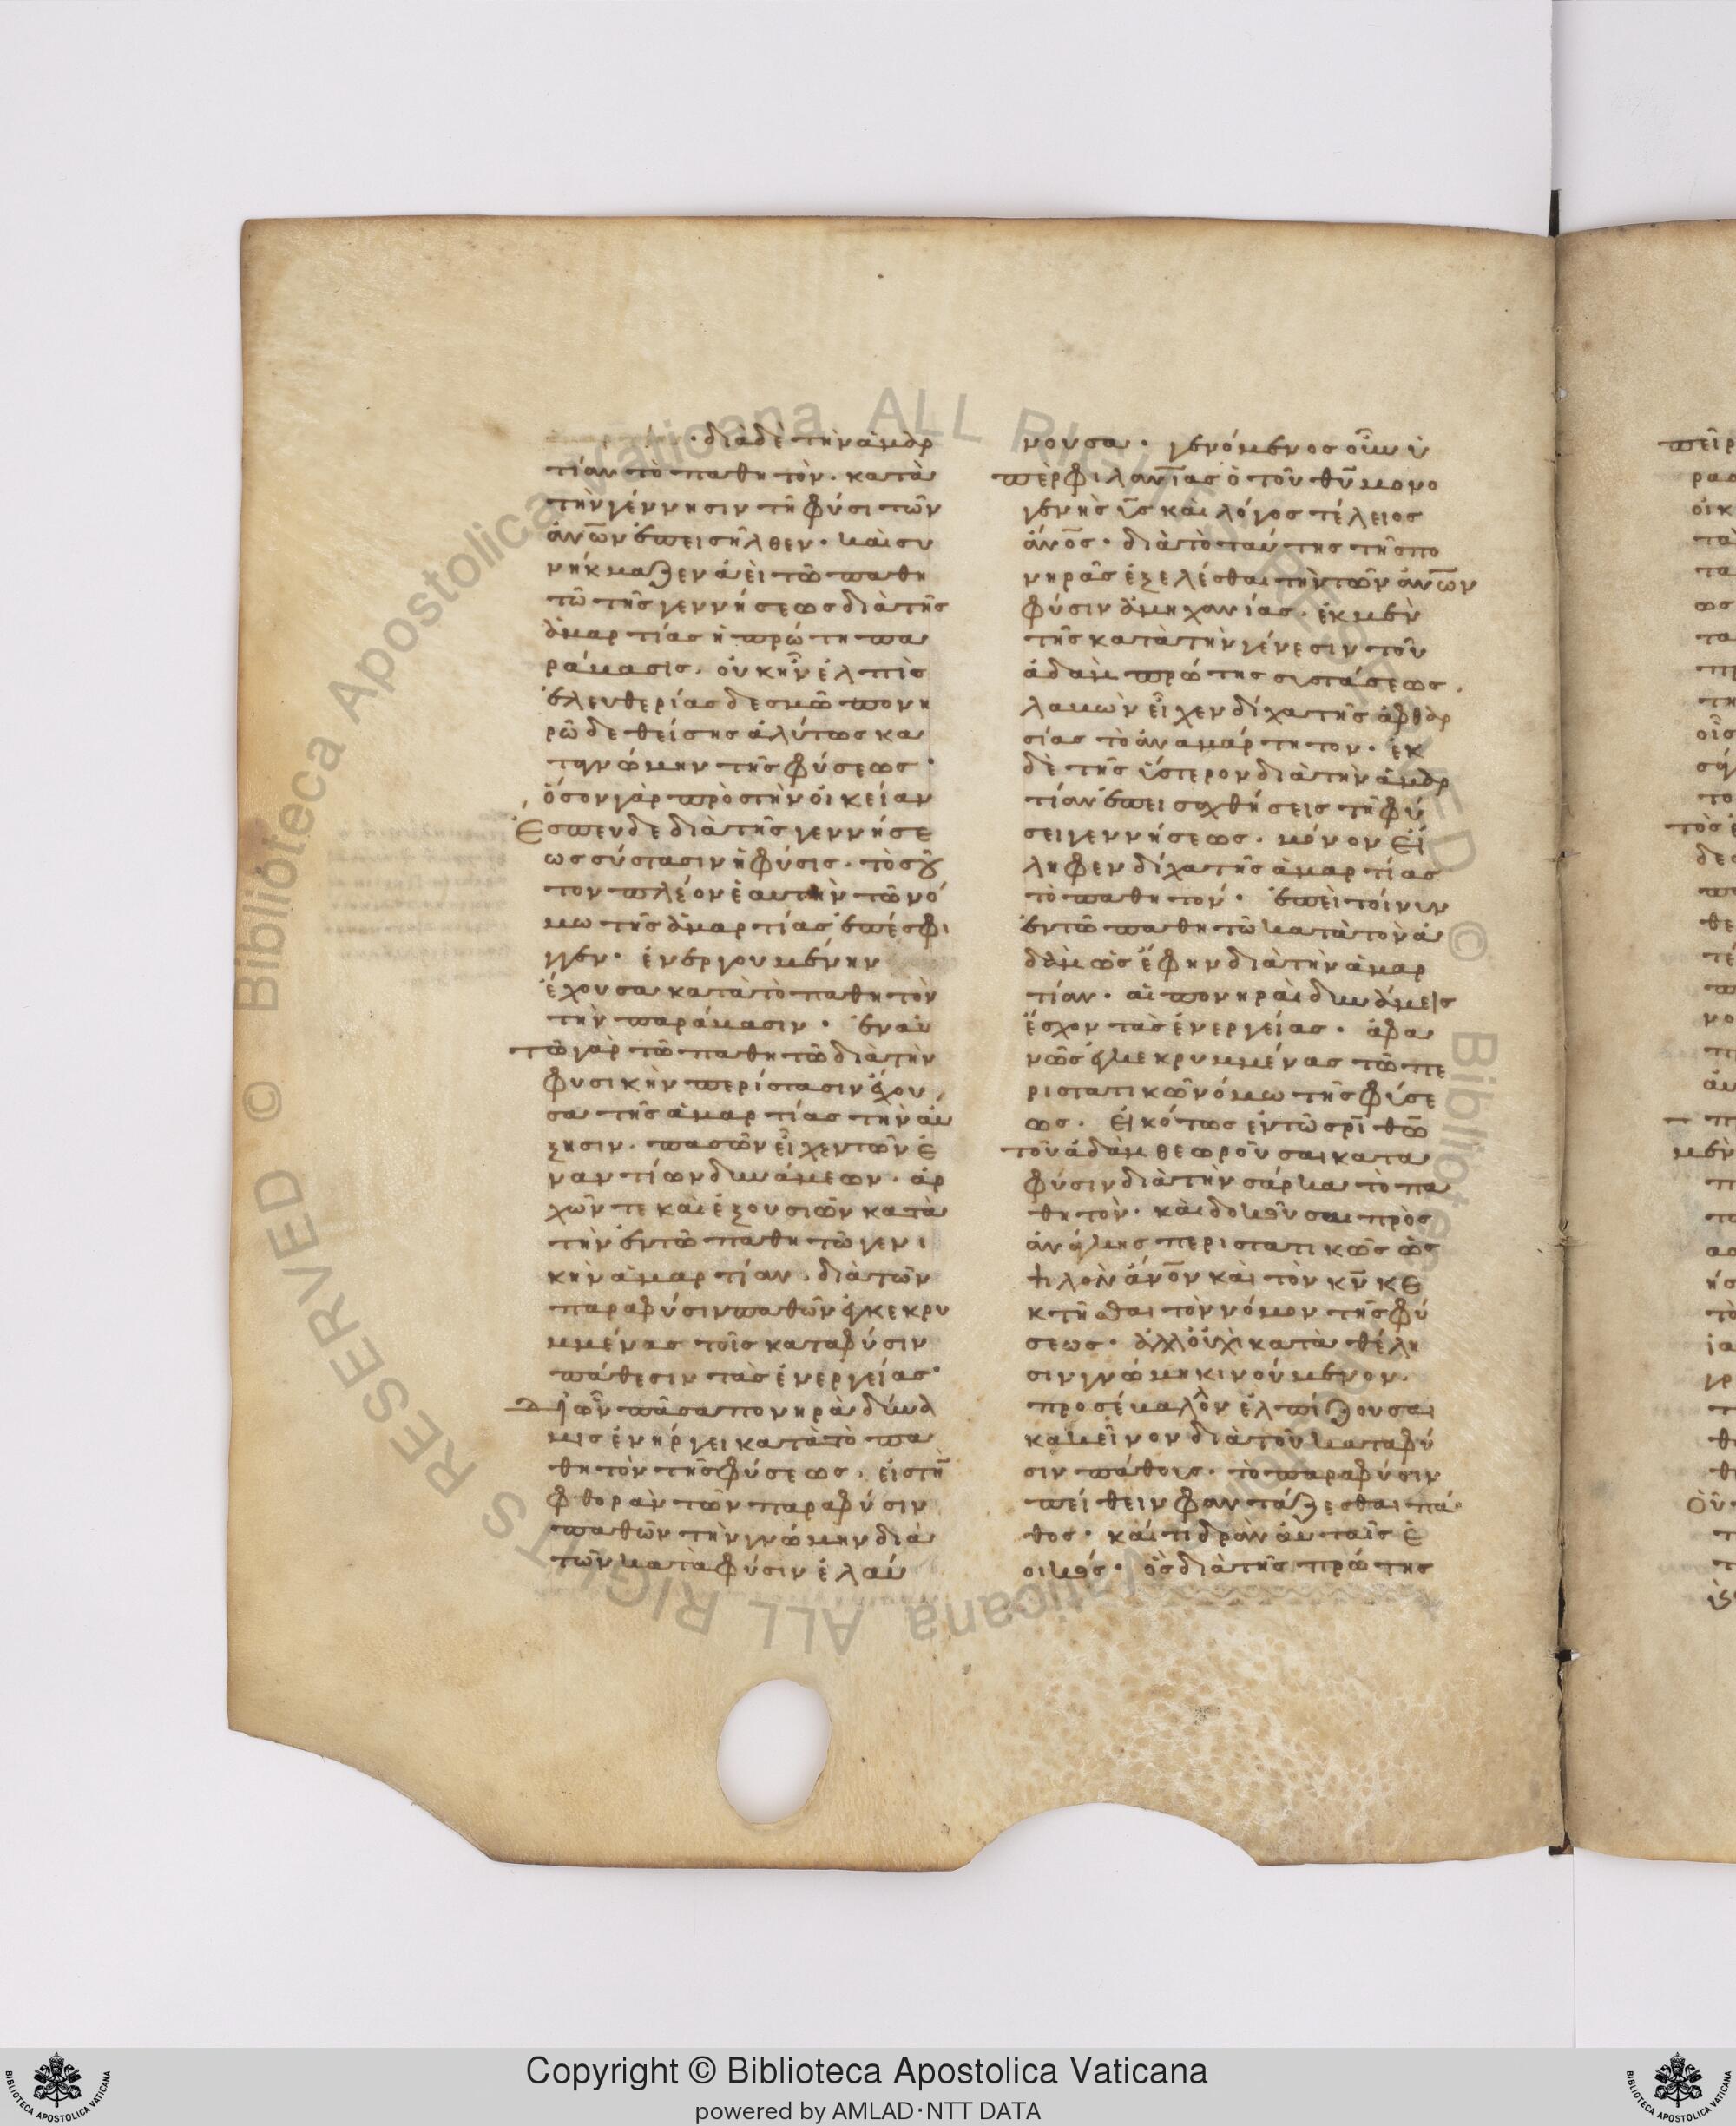 · διὰ δὲ τὴν ἁμαρ
τίαν τὸ παθητὸν · κατὰ
τὴν γέννησιν τῆ φύσι τῶν
ἀν̅ων ἐπεισῆλθεν · καὶ συ
νήκμαζεν ἀεὶ τῶ παθη
τῶ τῆς γεννήσεως διὰ τῆς
ἁμαρτίας ἡ πρώτη πα
ράβασις · οὐκ ἦν ἐλπὶς
ἐλευθερίας δεσμῶ πονη
ρῶ δεθείσης ἀλύτως κα
τὰ γνώμην τῆς φύσεως ·
ὅσον γὰρ πρὸς τὴν οἰκείαν
ἔσπευδε διὰ τῆς γεννήσε
ως σύστασιν ἡ φύσις · τοσοῦ
τον πλέον ἑαυτὴν τῶ νό
μω τῆς ἁμαρτίας ἐπέσφι
γγεν · ἐνεργουμένην
ἔχουσα κατὰ τὸ παθητὸν
τὴν παράβασιν · ἐν αὐ
τῶ γὰρ τῶ παθητῶ διὰ τὴν
φυσικὴν περίστασιν ἔχου
σα τῆς ἁμαρτίας τὴν αὔ
ξησιν · πασῶν εἶχεν τῶν ἐ
ναντίων δυνάμεων · ἀρ
χῶν τε καὶ ἐξουσιῶν κατὰ
τὴν ἐν τῶ παθητῶ γενι
κὴν ἁμαρτίαν · διὰ τῶν
παρα φύσιν παθῶν ἐγκεκρυ
μμένας τοῖς κατα φύσιν
πάθεσιν τὰς ἐνεργείας ·
δι ὧν πᾶσα πονηρὰ δύνα
μις ἐνήργει κατὰ τὸ πα
θητὸν τῆς φύσεως · εἰς τὴν
φθορὰν τῶν παρα φύσιν
παθῶν τὴν γνώμην διὰ
τῶν κατὰ φύσιν ἐλαύ
νουσα · γενόμενος οὖν ὑ
πὲρ φιλαν̅ίας ὁ τοῦ θ̅υ̅ μονο
γενὴς υ̅ς καὶ λόγος τέλειος
ἄν̅ος · διὰ τὸ ταύτης τῆς πο
νηρᾶς ἐξελέσθαι τὴν τῶν ἀν̅ων
φύσιν ἀμηχανίας · ἐκ μὲν
τῆς κατὰ τὴν γένεσιν τοῦ
ἀδὰμ πρώτης συστάσεως ·
λαβὼν εἶχεν δίχα τῆς ἀφθαρ
σίας τὸ ἀναμάρτητον · ἐκ
δὲ τῆς ὕστερον διὰ τὴν ἁμαρ
τίαν ἐπεισαχθήσεις τῆ φύ
σει γεννήσεως · μόνον εἴ
ληφεν δίχα τῆς ἁμαρτίας
τὸ παθητόν · ἐπεὶ τοίνυν
ἐν τῶ παθητῶ κατὰ τὸν ἀ
δὰμ ὡς ἔφην διὰ τὴν ἁμαρ
τίαν · αἱ πονηραὶ δυνάμεις
ἔσχον τὰς ἐνεργείας · ἀφα
νῶς ἐγκεκρυμμένας τῶ πε
ριστατικῶ νόμω τῆς φύσε
ως · εἰκότως ἐν τῶ σρ̅ι θ̅ω̅
τοῦ ἀδὰμ θεωροῦσαι κατα
φύσιν διὰ τὴν σάρκα τὸ πα
θητόν · καὶ δοκοῦσαι πρὸς
ἀνάγκης περιστατικῶς ὡς
ψιλὸν ἄν̅ον καὶ τὸν κ̅ν̅ κε
κτῆσθαι τὸν νόμον τῆς φύ
σεως · ἀλλ' οὐχὶ κατὰ θέλη
σιν γνώμη κινούμενον ·
προσέβαλον ἐλπίζουσαι
κακεῖνον διὰ τοῦ κατα φύ
σιν πάθους · τὸ παρα φύσιν
πείθειν φαντάζεσθαι πά
θος · καί τι δρᾶν αὐταῖς ἐ
οικός · ὃς διὰ τῆς πρώτης
Copyright © Biblioteca Apostolica Vaticana
powered by AMLAD·NTT DATA